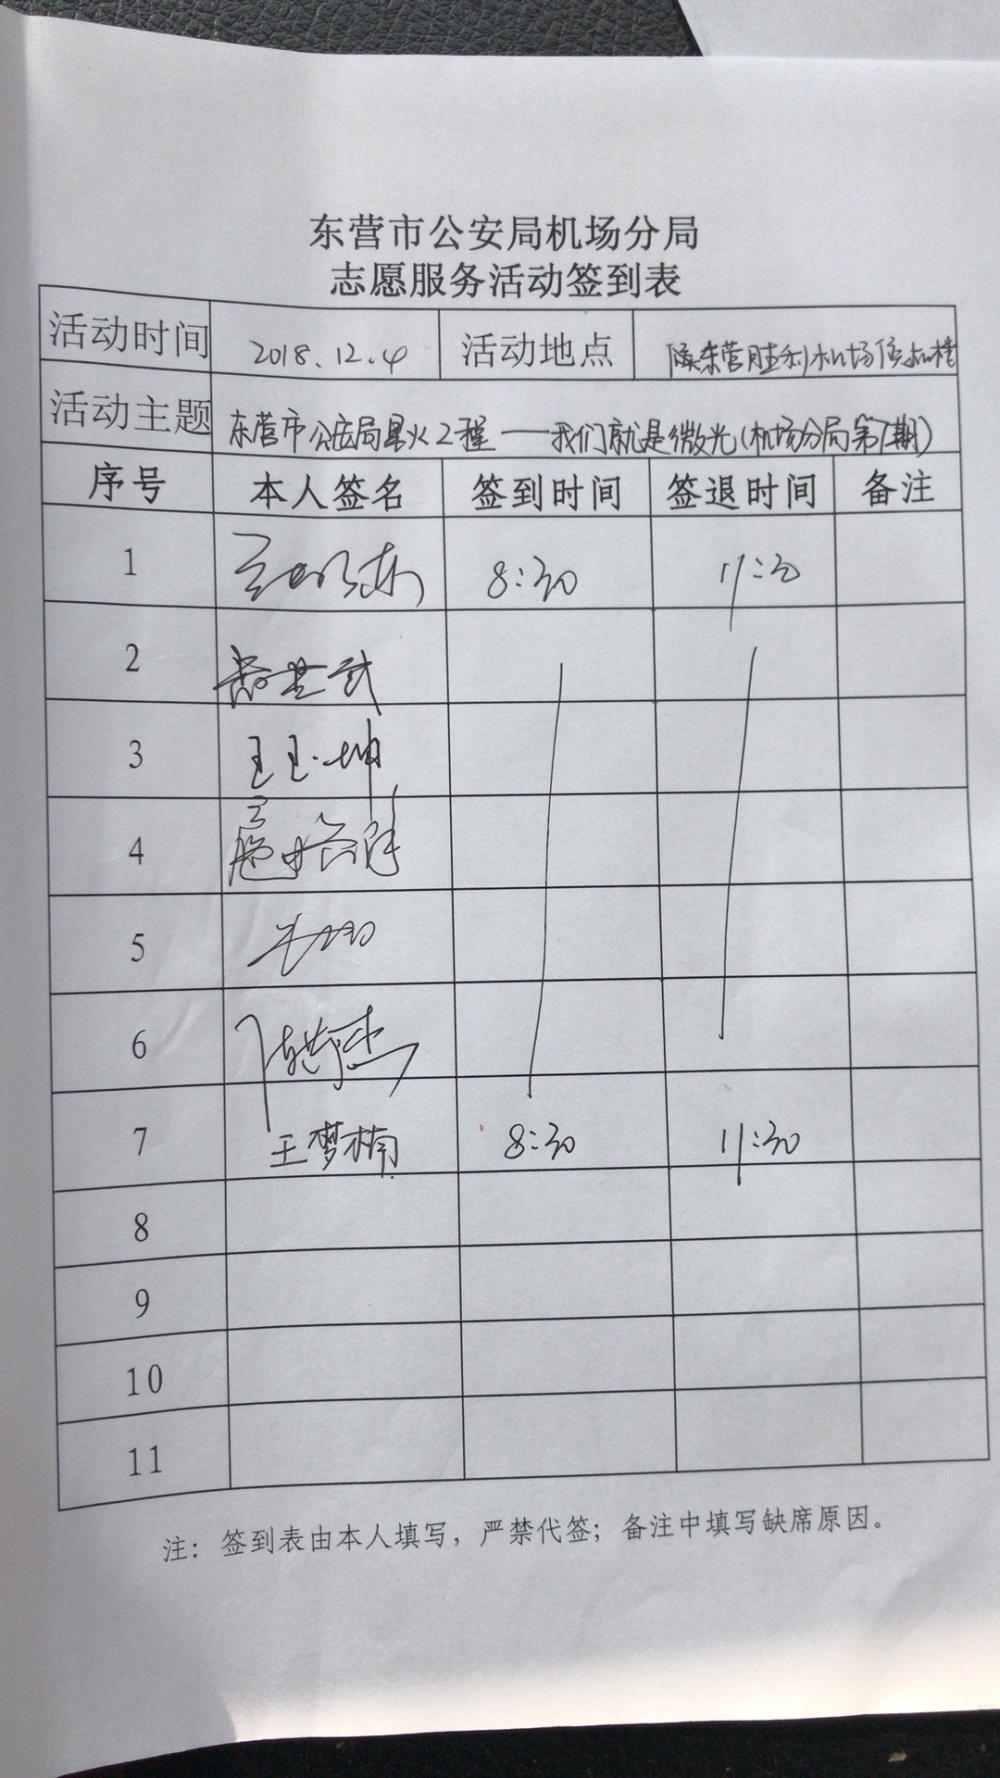 东营市公安局机场分局
志愿服务活动签到表
活动时间 2018.12.4 活动地点 东营胜利机场候机楼
活动主题 东营市公安局星火工程——我们就是微光(机场分局第1期)
序号 本人签名 签到时间 签退时间 备注
1 8:30 11:30
2
3 王玉坤
4
5
6
7 王梦楠 8:30 11:30
8
9
10
11
注：签到表由本人填写，严禁代签；备注中填写缺席原因。